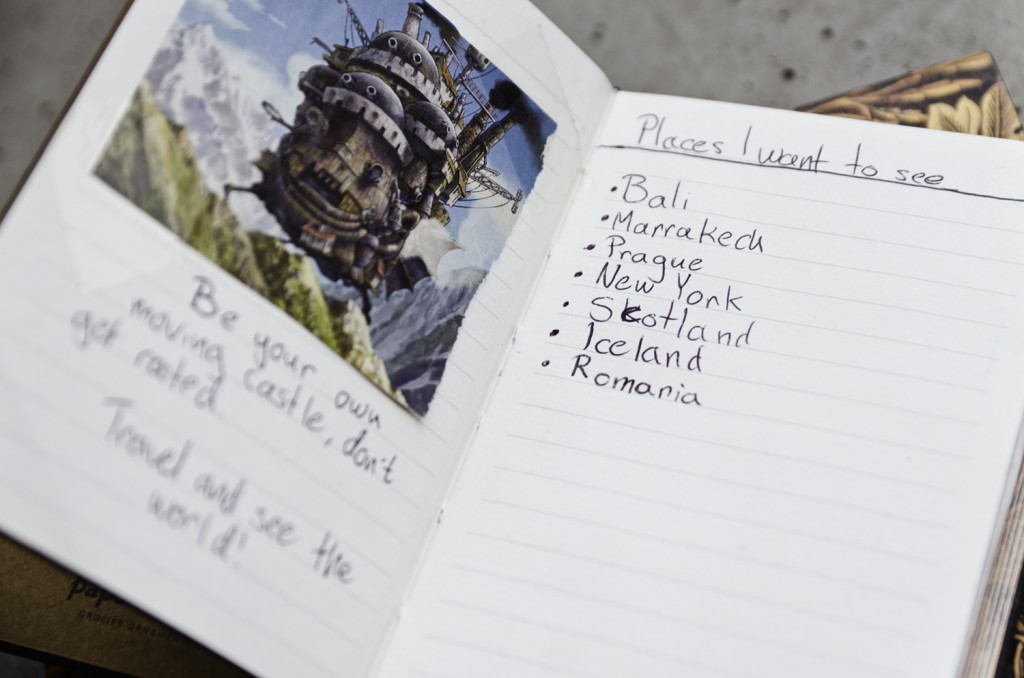 Be your own
moving castle, don't
get rooted
Travel and see the
world!
Places I want to see
• Bali
• Marrakech
• Prague
• New York
• Scotland
• Iceland
• Romania